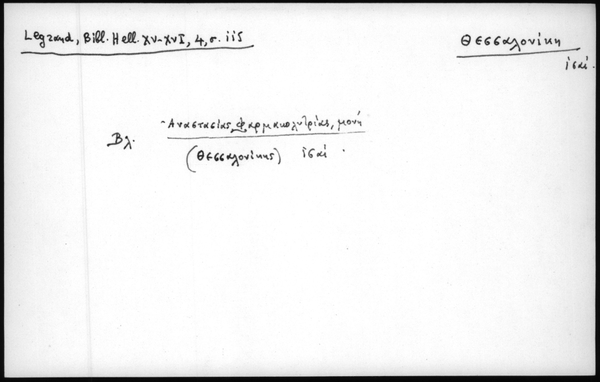 Legrand, Bibl. Hell. XV-XVI, 4, σ. 115
Θεσσαλονίκη
ἰσαί.
Ἀναστασίας Φαρμακολυτρίας, μονή
Βλ.
(Θεσσαλονίκης) ἰσαί.